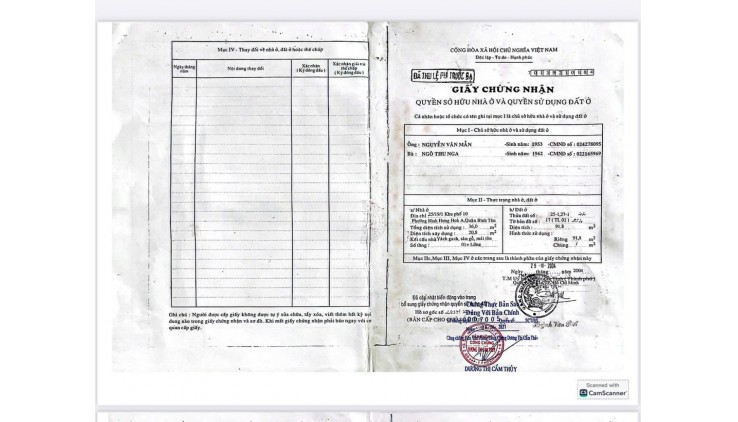 Mục IV - Thay đổi về nhà ở, đất ở hoặc thế chấp
Ngày tháng năm
Nội dung thay đổi
Xác nhận (Ký đóng dấu)
Xác nhận giải trừ thế chấp (Ký đóng dấu)
Ghi chú : Người được cấp giấy không được tự ý sửa chữa, tẩy xóa, viết thêm bất kỳ nội
dung nào trong giấy chứng nhận và sơ đồ. Khi mất giấy chứng nhận phải báo ngay với cơ
quan cấp giấy.
CỘNG HÒA XÃ HỘI CHỦ NGHĨA VIỆT NAM
Độc lập - Tự do - Hạnh phúc
ĐÃ THU LỆ PHÍ TRƯỚC BẠ
GIẤY CHỨNG NHẬN
QUYỀN SỞ HỮU NHÀ Ở VÀ QUYỀN SỬ DỤNG ĐẤT Ở
Cá nhân hoặc tổ chức có tên ghi tại mục I là chủ sở hữu nhà ở và sử dụng đất ở
Mục I - Chủ sở hữu nhà ở và sử dụng đất ở
Ông : NGUYỄN VĂN MẪN -Sinh năm: 1953 -CMND số : 024278095
Bà : NGÔ THU NGA -Sinh năm: 1962 -CMND số : 022165969
Mục II - Thực trạng nhà ở, đất ở
a/ Nhà ở
Địa chỉ 25/19/1 Khu phố 10
Phường Bình Hưng Hoà A,Quận Bình Tân
Tổng diện tích sử dụng : 36,0 m2
Diện tích xây dựng : 20,8 m2
Kết cấu nhà
Số tầng : 01+ Lửng
b/ Đất ở
Thửa đất số : 25-1,27-1
Tờ bản đồ số : 17 (TL 01)
Diện tích : 91,8 m2
Hình thức sử dụng:
Riêng : 91,8 m2
Chung : / m2
Mục III, Mục IV ở các trang sau là thành phần của giấy chứng nhận này
Ngày tháng năm 2004
Đã cập nhật biến động vào trang
bổ sung giấy chứng nhận quyền
Chứng Thực Bản Sao
Đúng Với Bản Chính
Hồ sơ gốc số
DƯƠNG THỊ CẨM THỦY
Scanned with
CamScanner